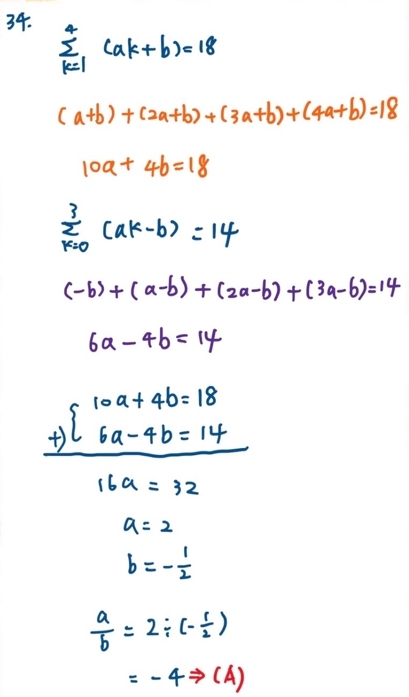 34.
$\sum_{k=1}^{4} (ak+b)=18$
(a+b)+(2a+b)+(3a+b)+(4a+b)=18
10a+4b=18
$\sum_{k=0}^{3} (ak-b)=14$
(-b)+(a-b)+(2a-b)+(3a-b)=14
6a-4b=14
10a+4b=18
+) { 6a-4b=14
16a=32
a=2
b=-\frac{1}{2}
\frac{a}{b}=2÷(-\frac{1}{2})
=-4⇒(A)